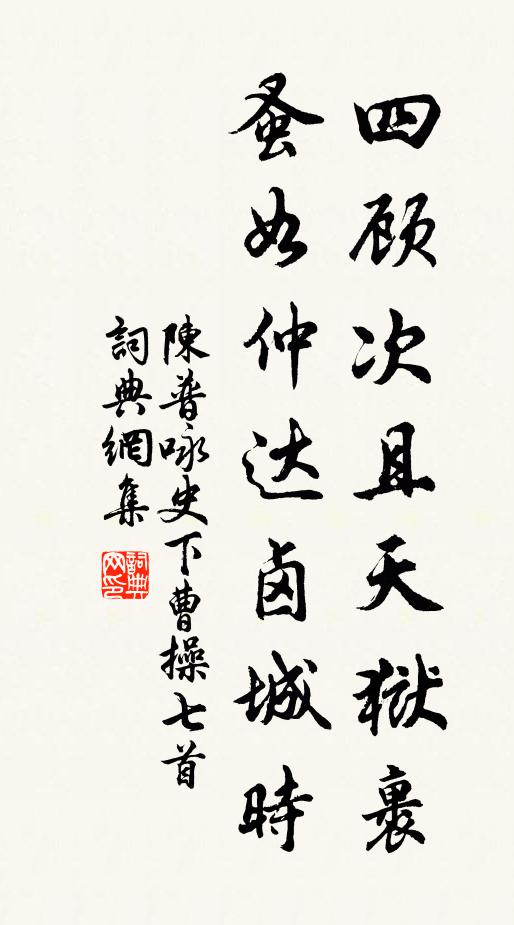 四顾次且天獄裹
蚤如仲达卤城時
陳普咏史下曹操七首
詞典網集
詞典网印